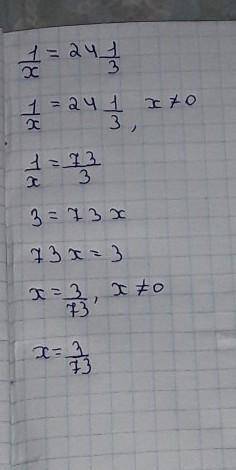 1/x = 24 1/3
1/x = 24 1/3, x ≠ 0
1/x = 73/3
3 = 73x
73x = 3
x = 3/73, x ≠ 0
x = 3/73